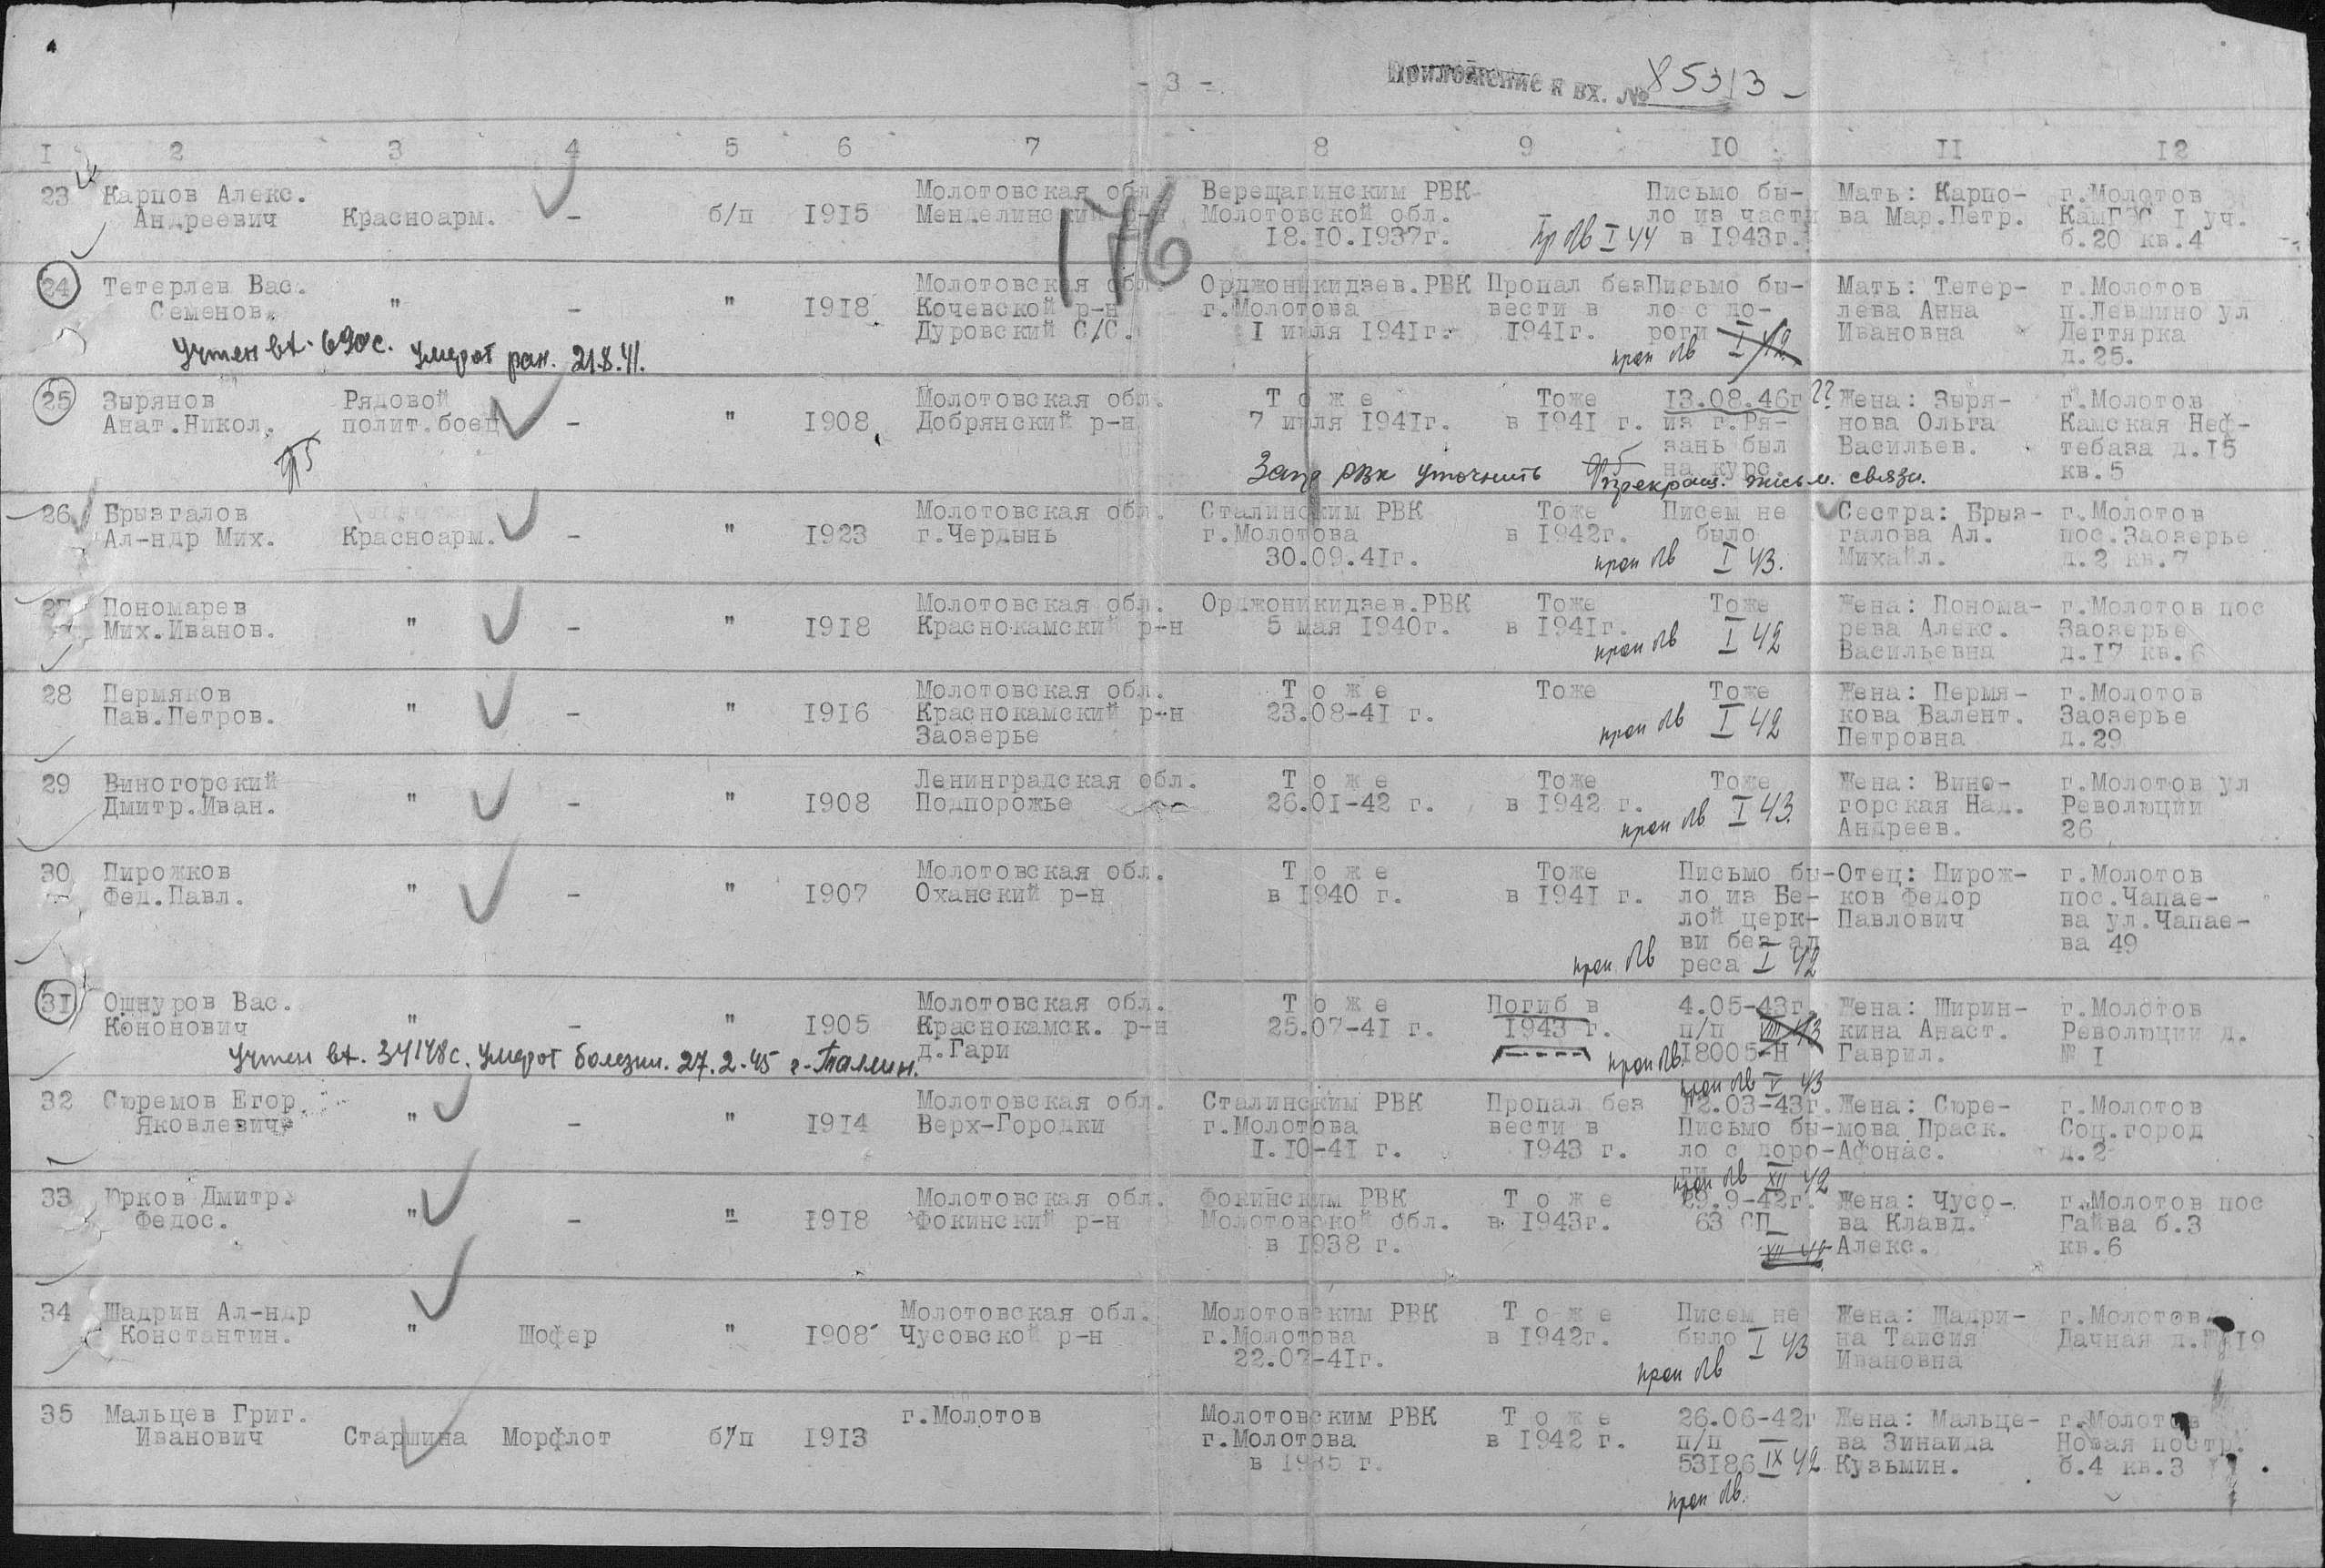 - 3 -
Приложение к вх. № 85313 -
I 2 3 4 5 6 7 8 9 10 II 12
176
23 Карпов Алекс. Молотовская обл. Верещагинским РВК Письмо бы- Мать: Карпо- г.Молотов
Андреевич Красноарм. - б/п 1915 Менделинский р-н Молотовской обл. - ло из части ва Мар.Петр. КамГЭС I уч.
18.10.1937г. в 1943г. б.20 кв.4
пр бв I 44
24 Тетерлев Вас. Молотовская обл. Орджоникидзев.РВК Пропал без Письмо бы- Мать: Тетер- г.Молотов
Семенов. " - " 1918 Кочевской р-н г.Молотова вести в ло с до- лева Анна п.Левшино ул
Дуровский С/С. I июля 1941г. 1941г. роги Ивановна Дегтярка
д.25.
Учтен вх. 690с. Умерот ран. 21.8.41. проп бв I 42
25 Зырянов Рядовой Молотовская обл. Т о ж е Тоже 13.08.46г ?? Жена: Зыря- г.Молотов
Анат.Никол. полит.боец - " 1908 Добрянский р-н 7 июля 1941г. в 1941 г. из г.Ря- нова Ольга Камская Неф-
зань был Васильев. тебаза д.15
на курс. кв.5
Запр РВК уточнить прекращ. письм. связи.
26 Брызгалов Молотовская обл. Сталинским РВК Тоже Писем не Сестра: Брыз- г.Молотов
Ал-ндр Мих. Красноарм. - " 1923 г.Чердынь г.Молотова в 1942г. было галова Ал. пос.Заозерье
30.09.41г. Михайл. д.2 кв.7
проп бв I 43.
27 Пономарев Молотовская обл. Орджоникидзев.РВК Тоже Тоже Жена: Понома- г.Молотов пос
Мих.Иванов. " - " 1918 Краснокамский р-н 5 мая 1940г. в 1941г. рева Алекс. Заозерье
проп бв I 42 Васильевна д.17 кв.6
28 Пермяков Молотовская обл. Т о ж е Тоже Тоже Жена: Пермя- г.Молотов
Пав.Петров. " - " 1916 Краснокамский р-н 23.08-41 г. кова Валент. Заозерье
Заозерье проп бв I 42 Петровна д.29
29 Виногорский Ленинградская обл. Т о ж е Тоже Тоже Жена: Вино- г.Молотов ул
Дмитр.Иван. " - " 1908 Подпорожье 26.01-42 г. в 1942 г. горская Над. Революции
проп бв I 43. Андреев. 26
30 Пирожков Молотовская обл. Т о ж е Тоже Письмо бы- Отец: Пирож- г.Молотов
Фед.Павл. " - " 1907 Оханский р-н в 1940 г. в 1941 г. ло из Бе- ков Федор пос.Чапае-
лой церк- Павлович ва ул.Чапае-
ви без ад ва 49
проп бв реса I 42
31 Ошнуров Вас. Молотовская обл. Т о ж е Погиб в 4.05-43г. Жена: Ширин- г.Молотов
Кононович " - " 1905 Краснокамск. р-н 25.07-41 г. 1943 г. п/п VIII 43 кина Анаст. Революции д.
д.Гари проп бв. 18005-Н Гаврил. № I
Учтен вх. 34148с. Умерот болезни. 27.2.45 г-Таллин.
проп бв V 43
32 Сюремов Егор Молотовская обл. Сталинским РВК Пропал без 12.03-43г. Жена: Сюре- г.Молотов
Яковлевич " - " 1914 Верх-Городки г.Молотова вести в Письмо бы- мова Праск. Соц.город
I.10-41 г. 1943 г. ло с доро- Афонас. д.2
ги
проп бв XII 42
33 Юрков Дмитр. Молотовская обл. Фокинским РВК Т о ж е 29.9-42г. Жена: Чусо- г.Молотов пос
Федос. " - " 1918 Фокинский р-н Молотовской обл. в 1943г. 63 СП ва Клавд. Гайва б.3
в 1938 г. XII 42 Алекс. кв.6
34 Шадрин Ал-ндр Молотовская обл. Молотовским РВК Т о ж е Писем не Жена: Шадри- г.Молотов
Константин. " Шофер " 1908 Чусовской р-н г.Молотова в 1942г. было I 43 на Таисия Дачная д.№ 19
22.07-41г. Ивановна
проп бв
35 Мальцев Григ. г.Молотов Молотовским РВК Т о ж е 26.06-42г Жена: Мальце- г.Молотов
Иванович Старшина Морфлот б/п 1913 г.Молотова в 1942 г. п/п ва Зинаида Новая постр.
в 1935 г. 53186 IX 42 Кузьмин. б.4 кв.3
проп бв.